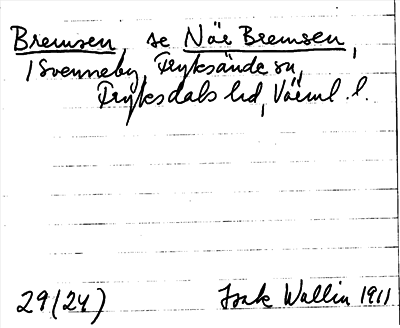 Bremsen, se Nör Bremsen,
/ Svenneby, Fryksände sn,
Fryksdals hd, Värml. l.
29 (24) Isak Wallin 1911